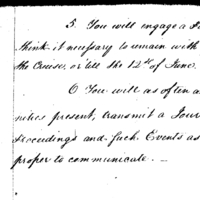 5. You will engage a
think it necessary to remain with
the Cruise, or till the 12th of June.
6 You will as often a
nities present, transmit a Jour
Proceedings and such Events as
proper to communicate. —